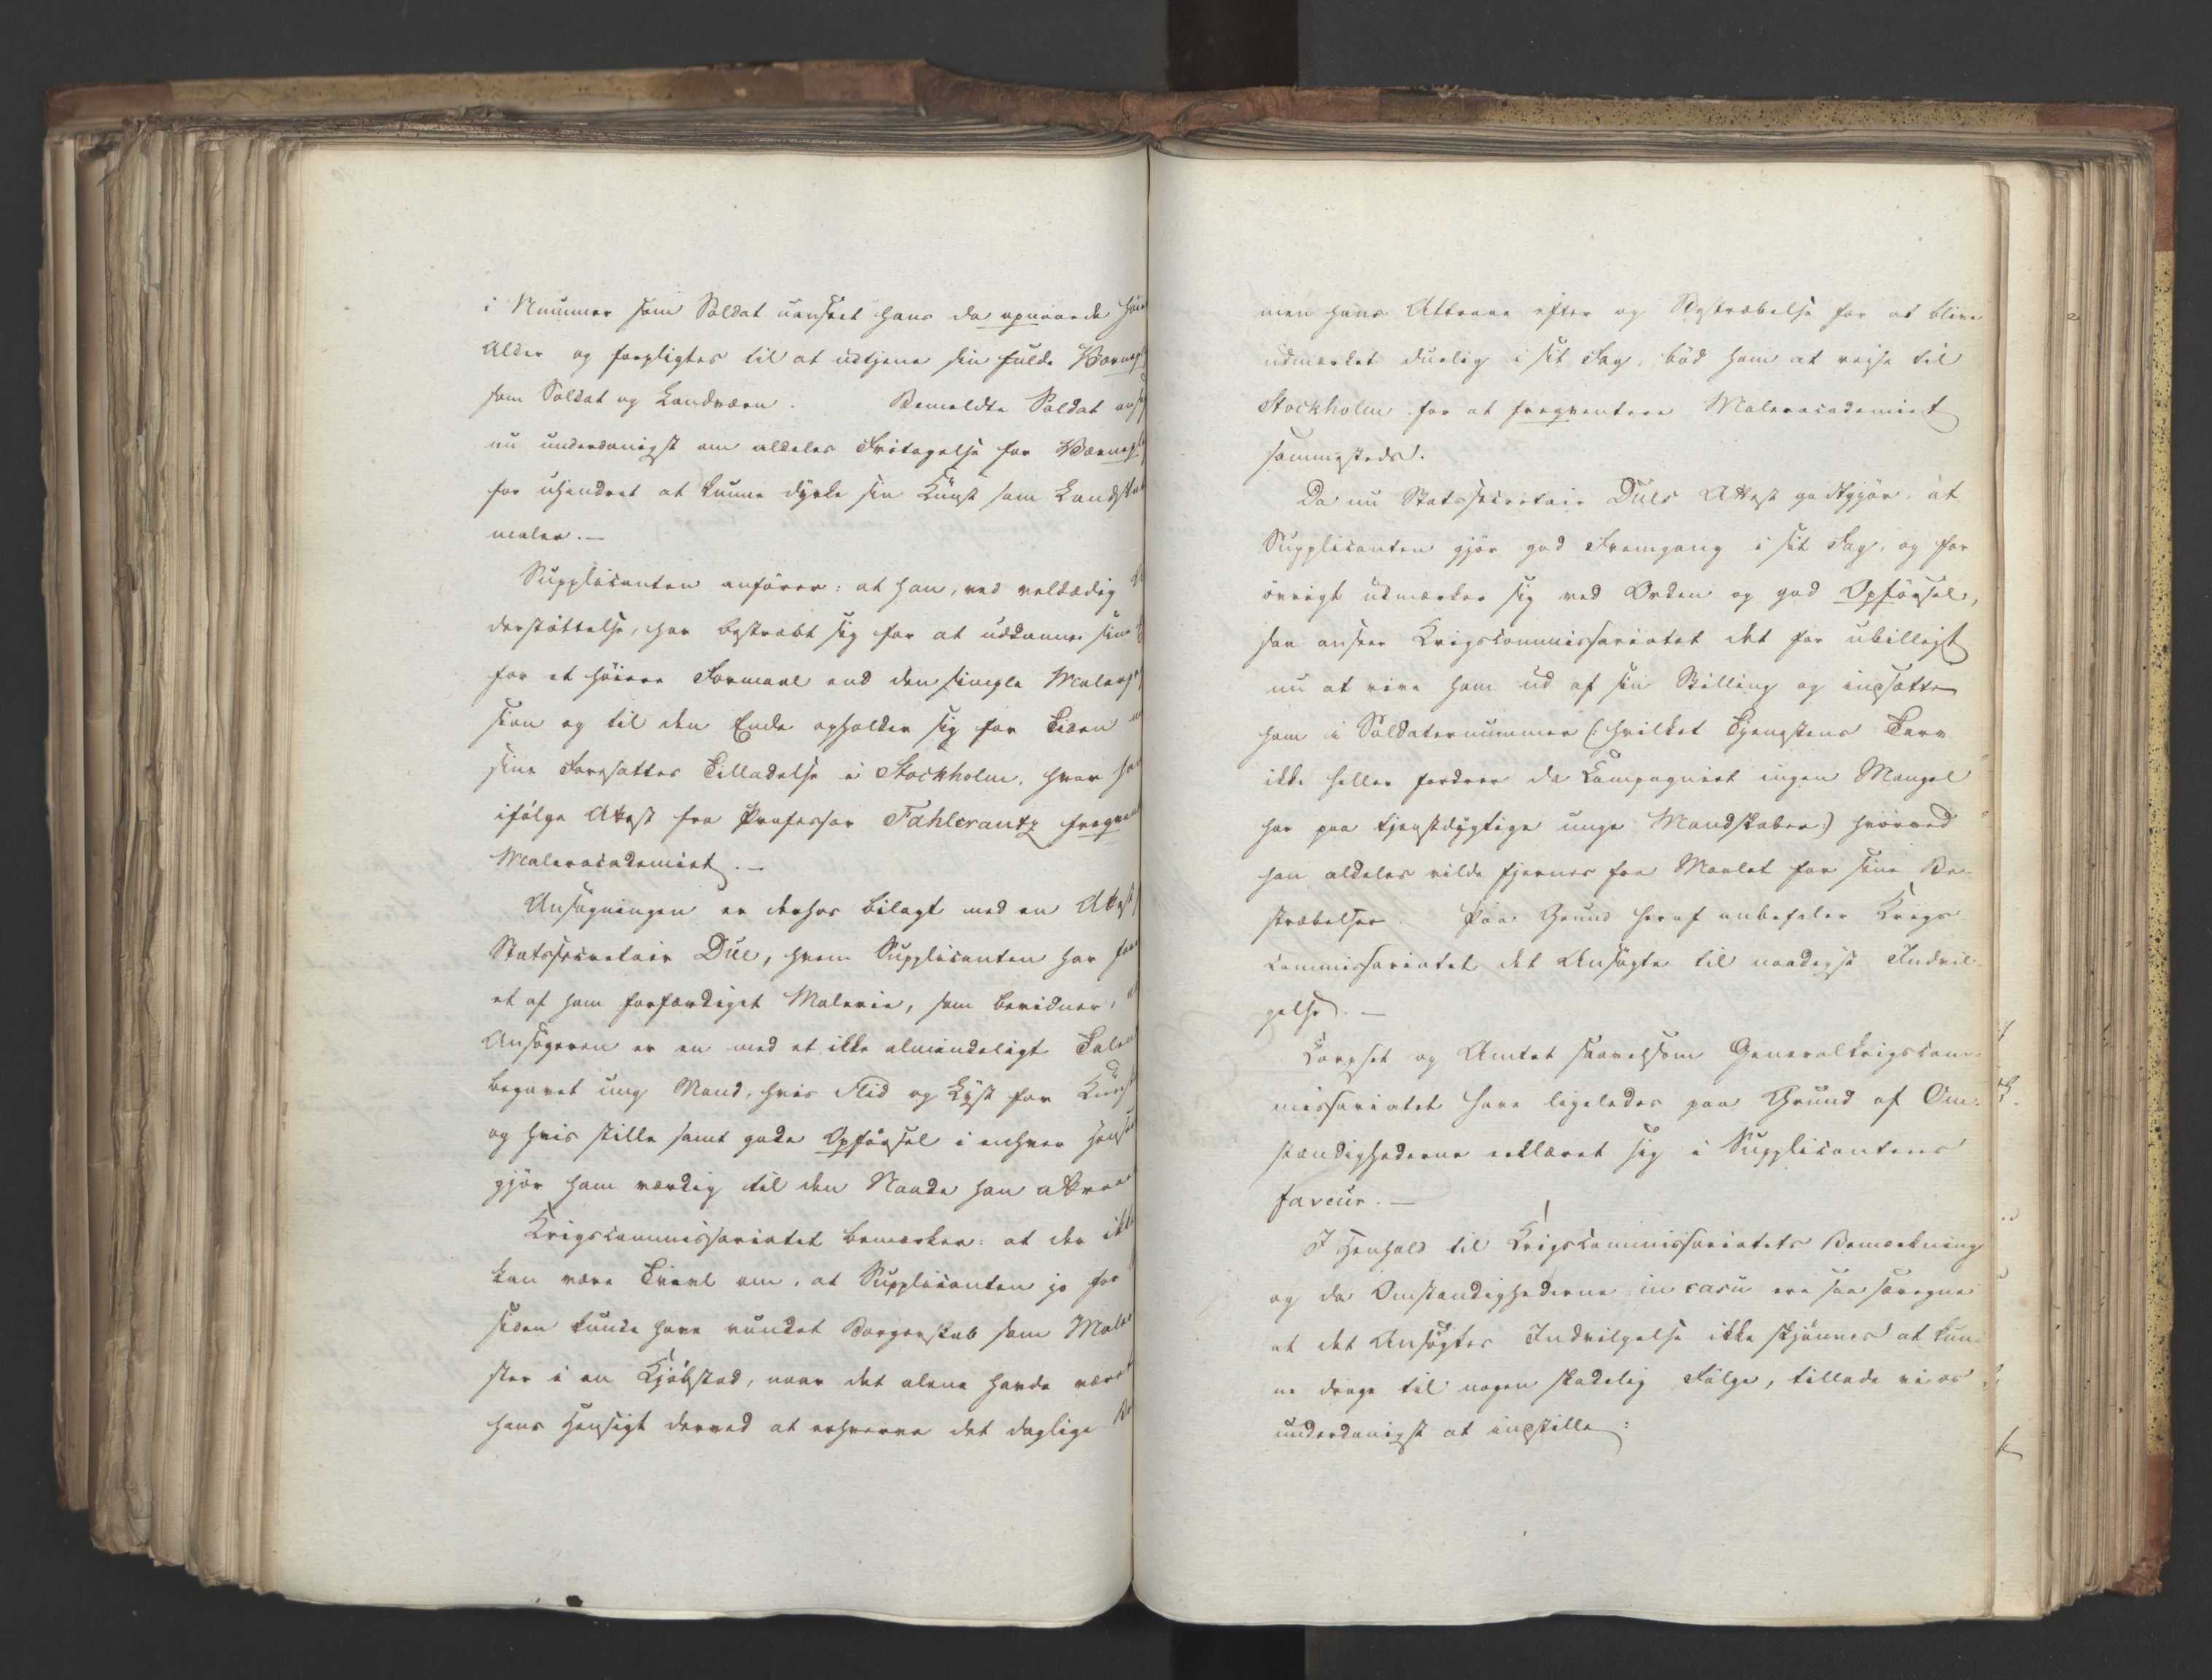 i Nummer som Soldat uanseet hans da opnaaede
Alder og forpligtes til at udtjene sin fulde Værnepl
som Soldat og Landværn. Bemeldte Soldat ans
nu underdanigst om aldeles Fritagelse for Værnepl
for uhindret at kunne dyrke sin Kunst som Landskabs
maler.—
Supplicanten anfører: at han, ved veldædig U
derstøttelse, har bestræbt sig for at uddanne sine
for et høiere Formaal end den simple Malerpro
sion og til den Ende opholder sig for Tiden
sine Foresattes Tilladelse i Stockholm, hvor han
ifølge Attest fra Professor Fahlcrantz frequen
Maleracademiet.—
Ansøgningen er derhos bilagt med en Attest
Statssecretair Due, hvem Supplicanten har
et af ham forfærdiget Malerie, som bevidner,
Ansøgeren er en med et ikke almindeligt Talen
begavet ung Mand, hvis Flid og Lyst for Kunst
og hvis stille samt gode Opførsel i enhver Hens
gjør ham værdig til den Naade han attraa
Krigscommissariatet bemærker: at der ikke
kan være Tvivl om, at Supplicanten jo for
siden kunde have vundet Borgerskab som Male
ster i en Kjøbstad, naar det alene havde været
hans Hensigt derved at erhverve det daglige Br
men hans Attraae efter og Bestræbelse for at blive
udmærket duelig i sit Fag, bød ham at reise til
Stockholm for at freqventere Maleracademiet
sammesteds.
Da nu Statssecretair Dues Attest godtgjør, at
Supplicanten gjør god Fremgang i sit Fag, og for
øvrigt udmærker sig ved Orden og god Opførsel,
saa anseer Krigscommissariatet det for ubilligt
nu at rive ham ud af sin Stilling og indsætte
ham i Soldaternummer (: hvilket Tjenestens Tarv
ikke heller fordrer da Compagniet ingen Mangel
har paa tjenstdygtige unge Mandskaber:) hvorved
han aldeles vilde fjernes fra Maalet for sine Be-
stræbelser. Paa Grund heraf anbefaler Krigs
commissariatet det Ansøgte til naadigst Indvil-
gelse.—
Corpset og Amtet saavelsom Generalkrigscom-
missariatet have ligeledes paa Grund af Om-
stændighederne erklæret sig i Supplicantens
faveur.—
I Henhold til Krigscommissariatets Bemærkning
og da Omstændighederne in casu ere saa særegne
at det Ansøgtes Indvilgelse ikke skjønnes at kun
ne drage til nogen skadelig Følge, tillade vi os
underdanigst at indstille: